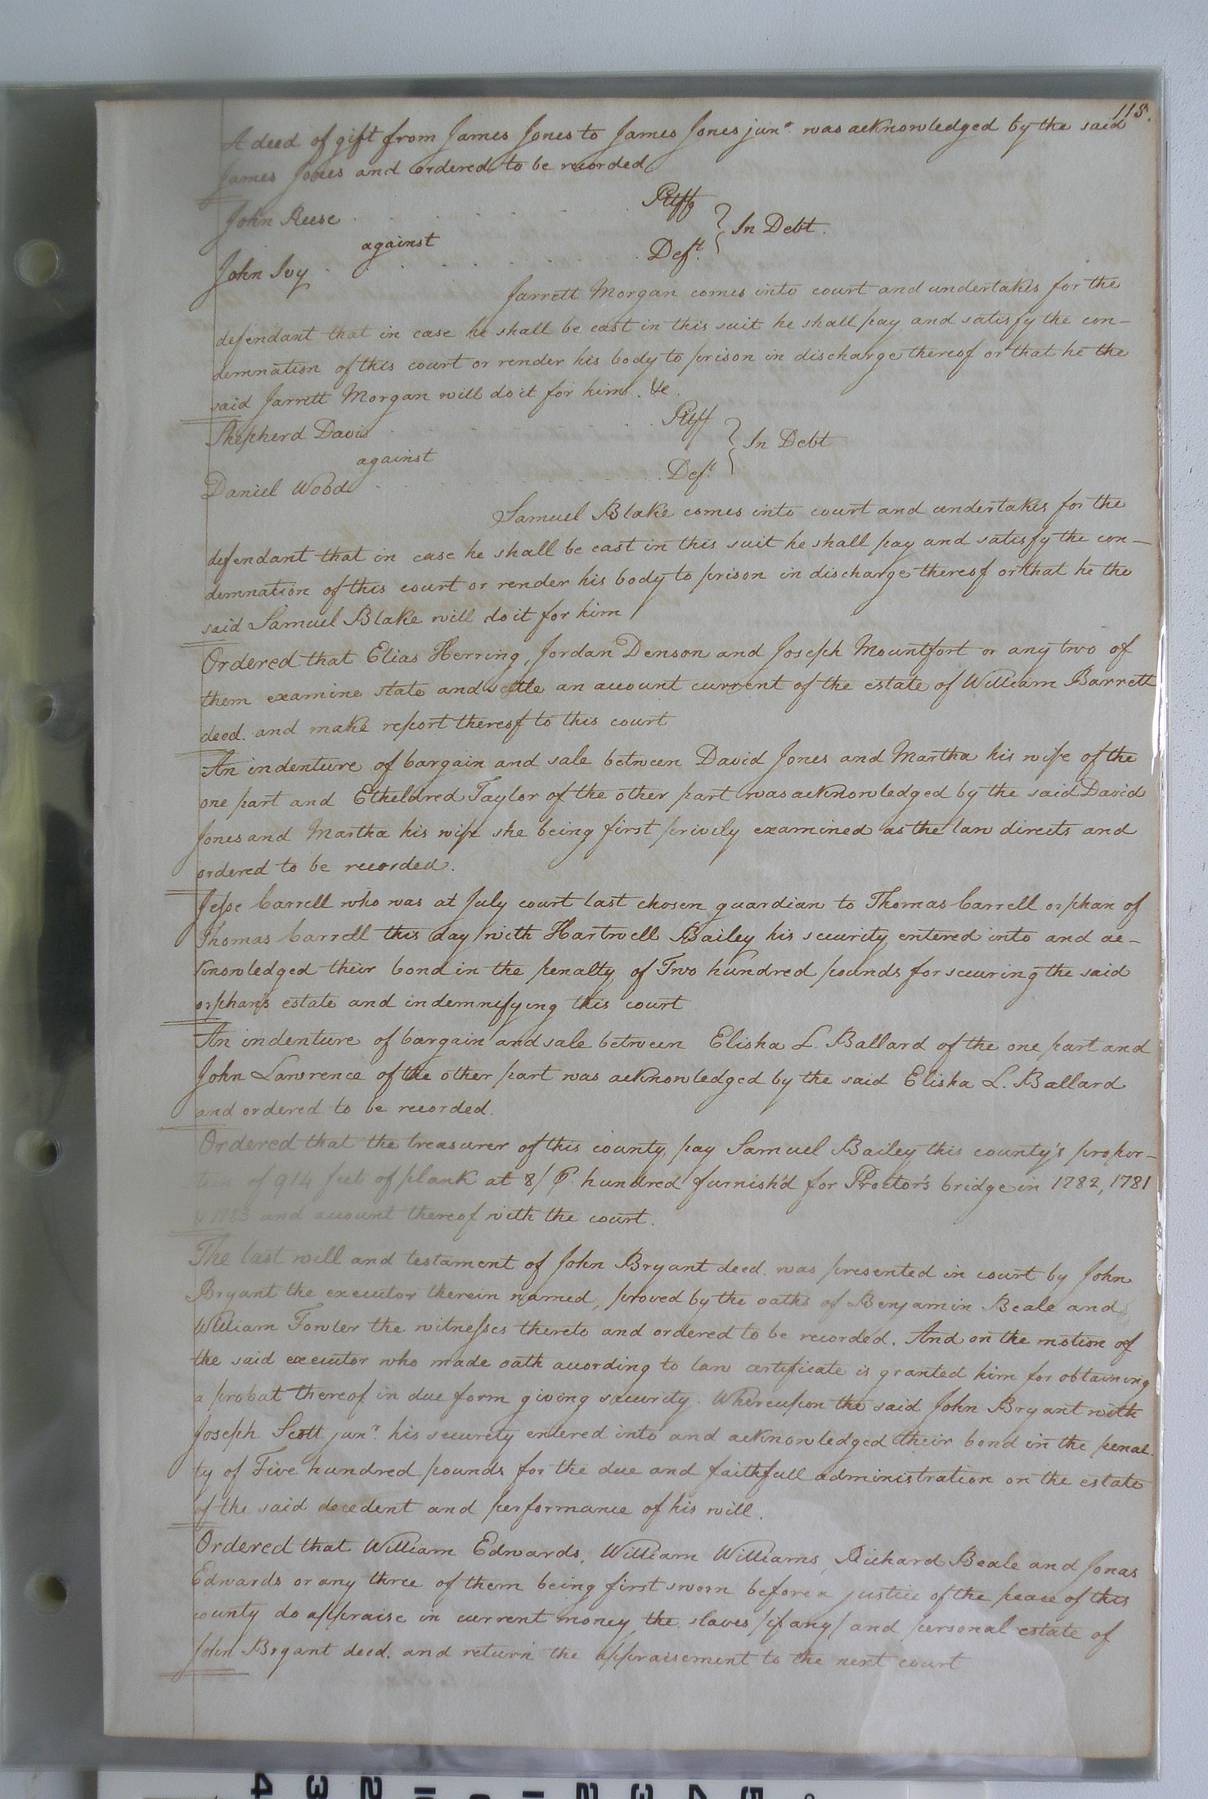 115.
A deed of gift from James Jones to James Jones junr. was acknowledged by the said
James Jones and ordered to be recorded
John Reese . . . . . . Pltff
against } In Debt.
John Ivy . . . . . . Deft.
Jarrett Morgan comes into court and undertakes for the
defendant that in case he shall be cast in this suit he shall pay and satisfy the con-
demnation of this court or render his body to prison in discharge thereof or that he the
said Jarrett Morgan will do it for him. &c.
Shepherd Davis . . . . . . Pltff
against } In Debt
Daniel Wood . . . . . . Deft.
Samuel Blake comes into court and undertakes for the
defendant that in case he shall be cast in this suit he shall pay and satisfy the con-
demnation of this court or render his body to prison in discharge thereof or that he the
said Samuel Blake will do it for him
Ordered that Elias Herring, Jordan Denson and Joseph Mountfort or any two of
them examine state and settle an account current of the estate of William Barrett
decd. and make report thereof to this court
An indenture of bargain and sale between David Jones and Martha his wife of the
one part and Etheldred Taylor of the other part was acknowledged by the said David
Jones and Martha his wife she being first privily examined as the law directs and
ordered to be recorded.
Jesse Carrell who was at July court last chosen guardian to Thomas Carrell orphan of
Thomas Carrell this day with Hartwell Bailey his security entered into and ac-
knowledged their bond in the penalty of Two hundred pounds for securing the said
orphan's estate and indemnifying this court
An indenture of bargain and sale between Elisha L. Ballard of the one part and
John Lawrence of the other part was acknowledged by the said Elisha L. Ballard
and ordered to be recorded.
Ordered that the treasurer of this county pay Samuel Bailey this county's propor-
tion of 914 feet of plank at 8/ ⅌ hundred furnish'd for Proctor's bridge in 1782, 1781
& 1783 and account thereof with the court.
The last will and testament of John Bryant decd. was presented in court by John
Bryant the executor therein named, proved by the oaths of Benjamin Beale and
William Fowler the witnesses thereto and ordered to be recorded. And on the motion of
the said executor who made oath according to law certificate is granted him for obtaining
a probat thereof in due form giving security. Whereupon the said John Bryant with
Joseph Scott junr. his security entered into and acknowledged their bond in the penal-
ty of Five hundred pounds for the due and faithfull administration on the estate
of the said decedent and performance of his will.
Ordered that William Edwards, William Williams, Richard Beale and Jonas
Edwards or any three of them being first sworn before a justice of the peace of this
county do appraise in current money the slaves /if any/ and personal estate of
John Bryant decd. and return the appraisement to the next court